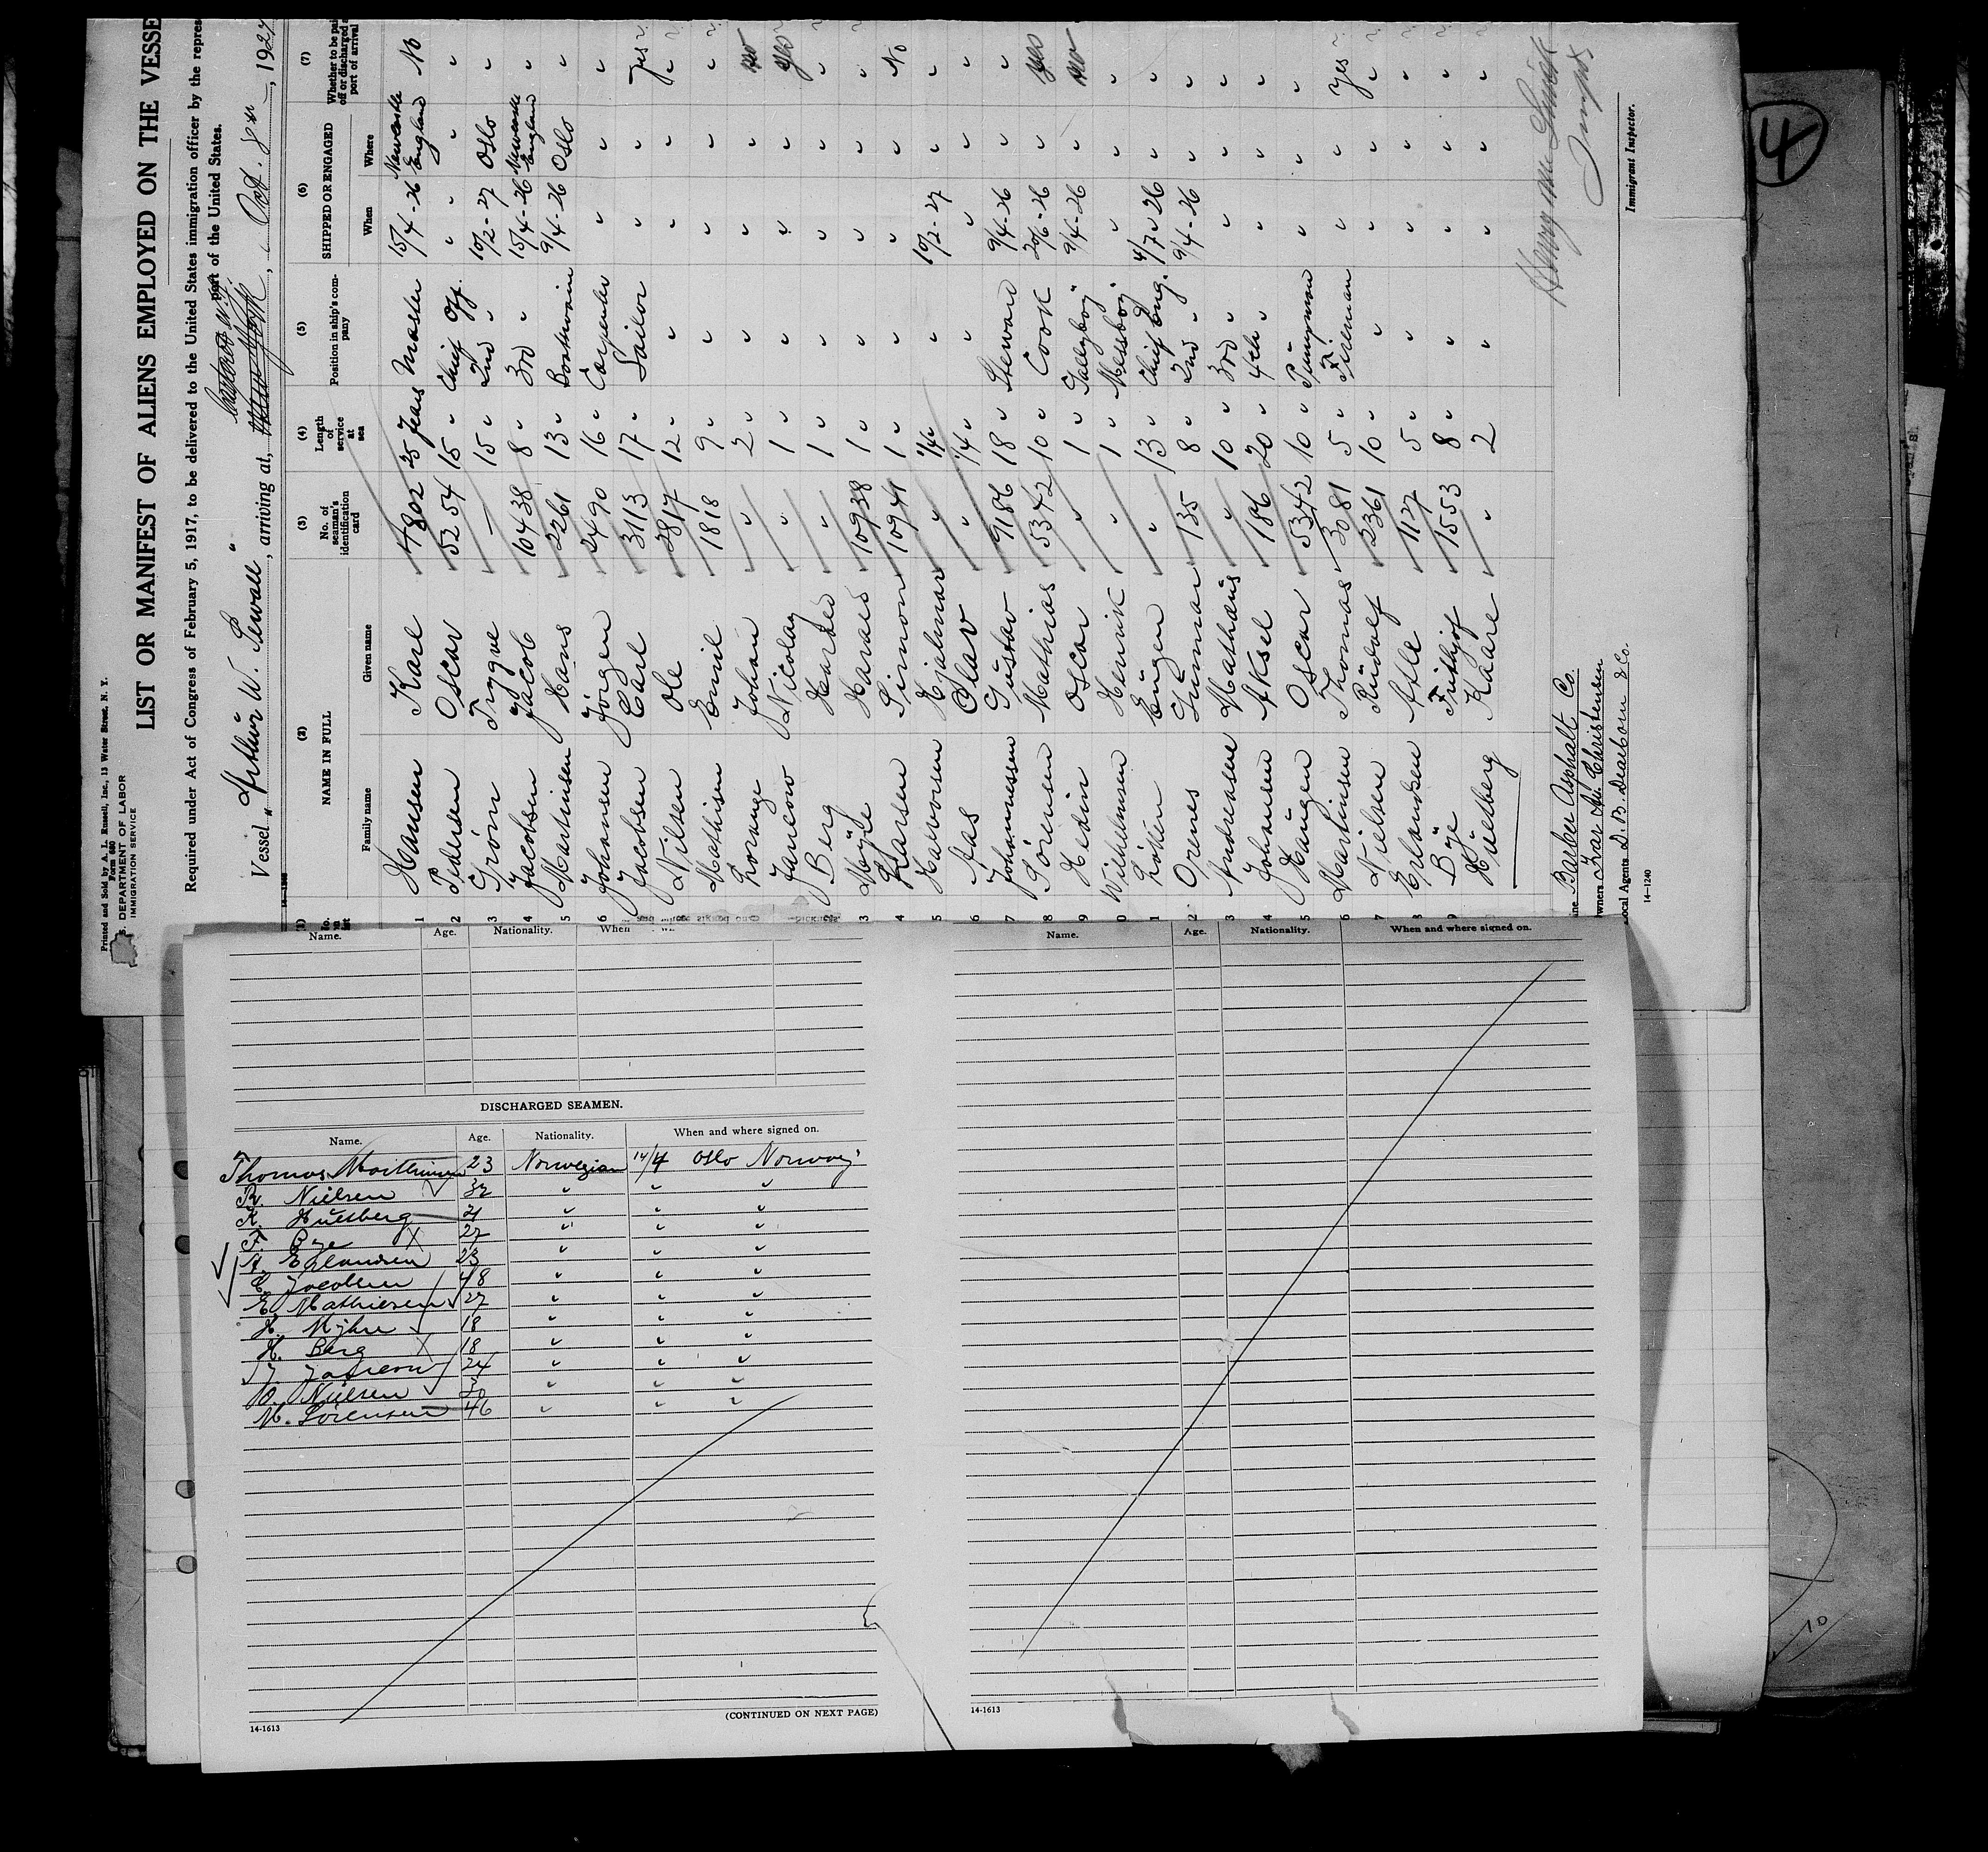 Printed and Sold by A. L. Russell, Inc., 13 Water Street, N. Y.
Form 680
S. DEPARTMENT OF LABOR
IMMIGRATION SERVICE
LIST OR MANIFEST OF ALIENS EMPLOYED ON THE VESSE
Required under Act of Congress of February 5, 1917, to be delivered to the United States immigration officer by the repres
port of the United States.
Vessel „Arthur W. Sewall", arriving at, Oct. 8th, 1927
(2) (3) (4) (5) (6) (7)
NAME IN FULL No. of seaman's identification card Length of service at sea Position in ship's company SHIPPED OR ENGAGED Whether to be pai off or discharged a port of arrival
Family name Given name When Where
1 Hansen Karl 4802 25 Years Master 15/4-26 Newcastle England No
2 Pedersen Oscar 5254 15 " Chief Off. " " "
3 Grøm Trygve — 15 " 2nd " 10/2-27 Oslo "
4 Jacobsen Jacob 10438 8 " 3rd " 15/4-26 Newcastle England "
5 Martinsen Hans 2261 13 " Boatswain 9/4-26 Oslo "
6 Johansen Jörgen 2490 16 " Carpenter " " "
Jacobsen Carl 3113 17 " Sailor " " Yes
Nilsen Ole 2817 12 " " " " "
Mathisen Emil 1818 9 " " " " "
Lorange Johan " 2 " " " " no
Jancow Nicolay " 1 " " " " yes
2 Berg Harald " 1 " " " " "
3 Myhre Harald 10938 1 " " " " "
4 Larsen Simon 10941 1 " " " " No
5 Halvorsen Hjalmar " 1/4 " " 10/2-27 " "
6 Aas Olav " 1/4 " " " " "
7 Johannessen Gustav 9186 18 " Steward 9/4-26 " "
8 Sörensen Mathias 5342 10 " Cook 20/6-26 " yes
9 Hedin Oscar " 1 " Galleyboy 9/4-26 " no
0 Wilhelmsen Henrik " 1 " Messboy " " "
1 Eugen " 13 " Chief Eng. 4/7-26 " "
2 Orenes Gunnar 135 8 " 2nd " 9/4-26 " "
3 Andreasen Mathæus " 10 " 3rd " " " "
4 Johansen Aksel 186 20 " 4th " " " "
5 Haugen Oscar 5342 10 " Pumpman " " "
6 Martinsen Thomas 3081 5 " Fireman " " Yes
7 Nielsen Rudolf 2361 10 " " " " "
8 Erlandsen Atle 1127 5 " " " " "
9 Bye Frithjof 1553 8 " " " " "
Hultberg Kaare " 2 " " " "
Barber Asphalt Co.
Owners Christensen
Local Agents D. B. Dearborn & Co.
14—1240
Immigrant Inspector.
4
Name. Age. Nationality. When
DISCHARGED SEAMEN.
Name. Age. Nationality. When and where signed on.
Thomas Marthinsen 23 Norwegian 14/4 Oslo Norway
R. Nielsen 32 " " "
K. Hultberg 21 " " "
F. Bye 27 " " "
A. Erlandsen 23 " " "
C. Jacobsen 48 " " "
E. Mathiesen 27 " " "
H. Myhre 18 " " "
H. Berg 18 " " "
24 " " "
O. Nielsen 30 " " "
M. Sörensen 46 " " "
14-1613
(CONTINUED ON NEXT PAGE)
Name. Age. Nationality. When and where signed on.
14-1613
10